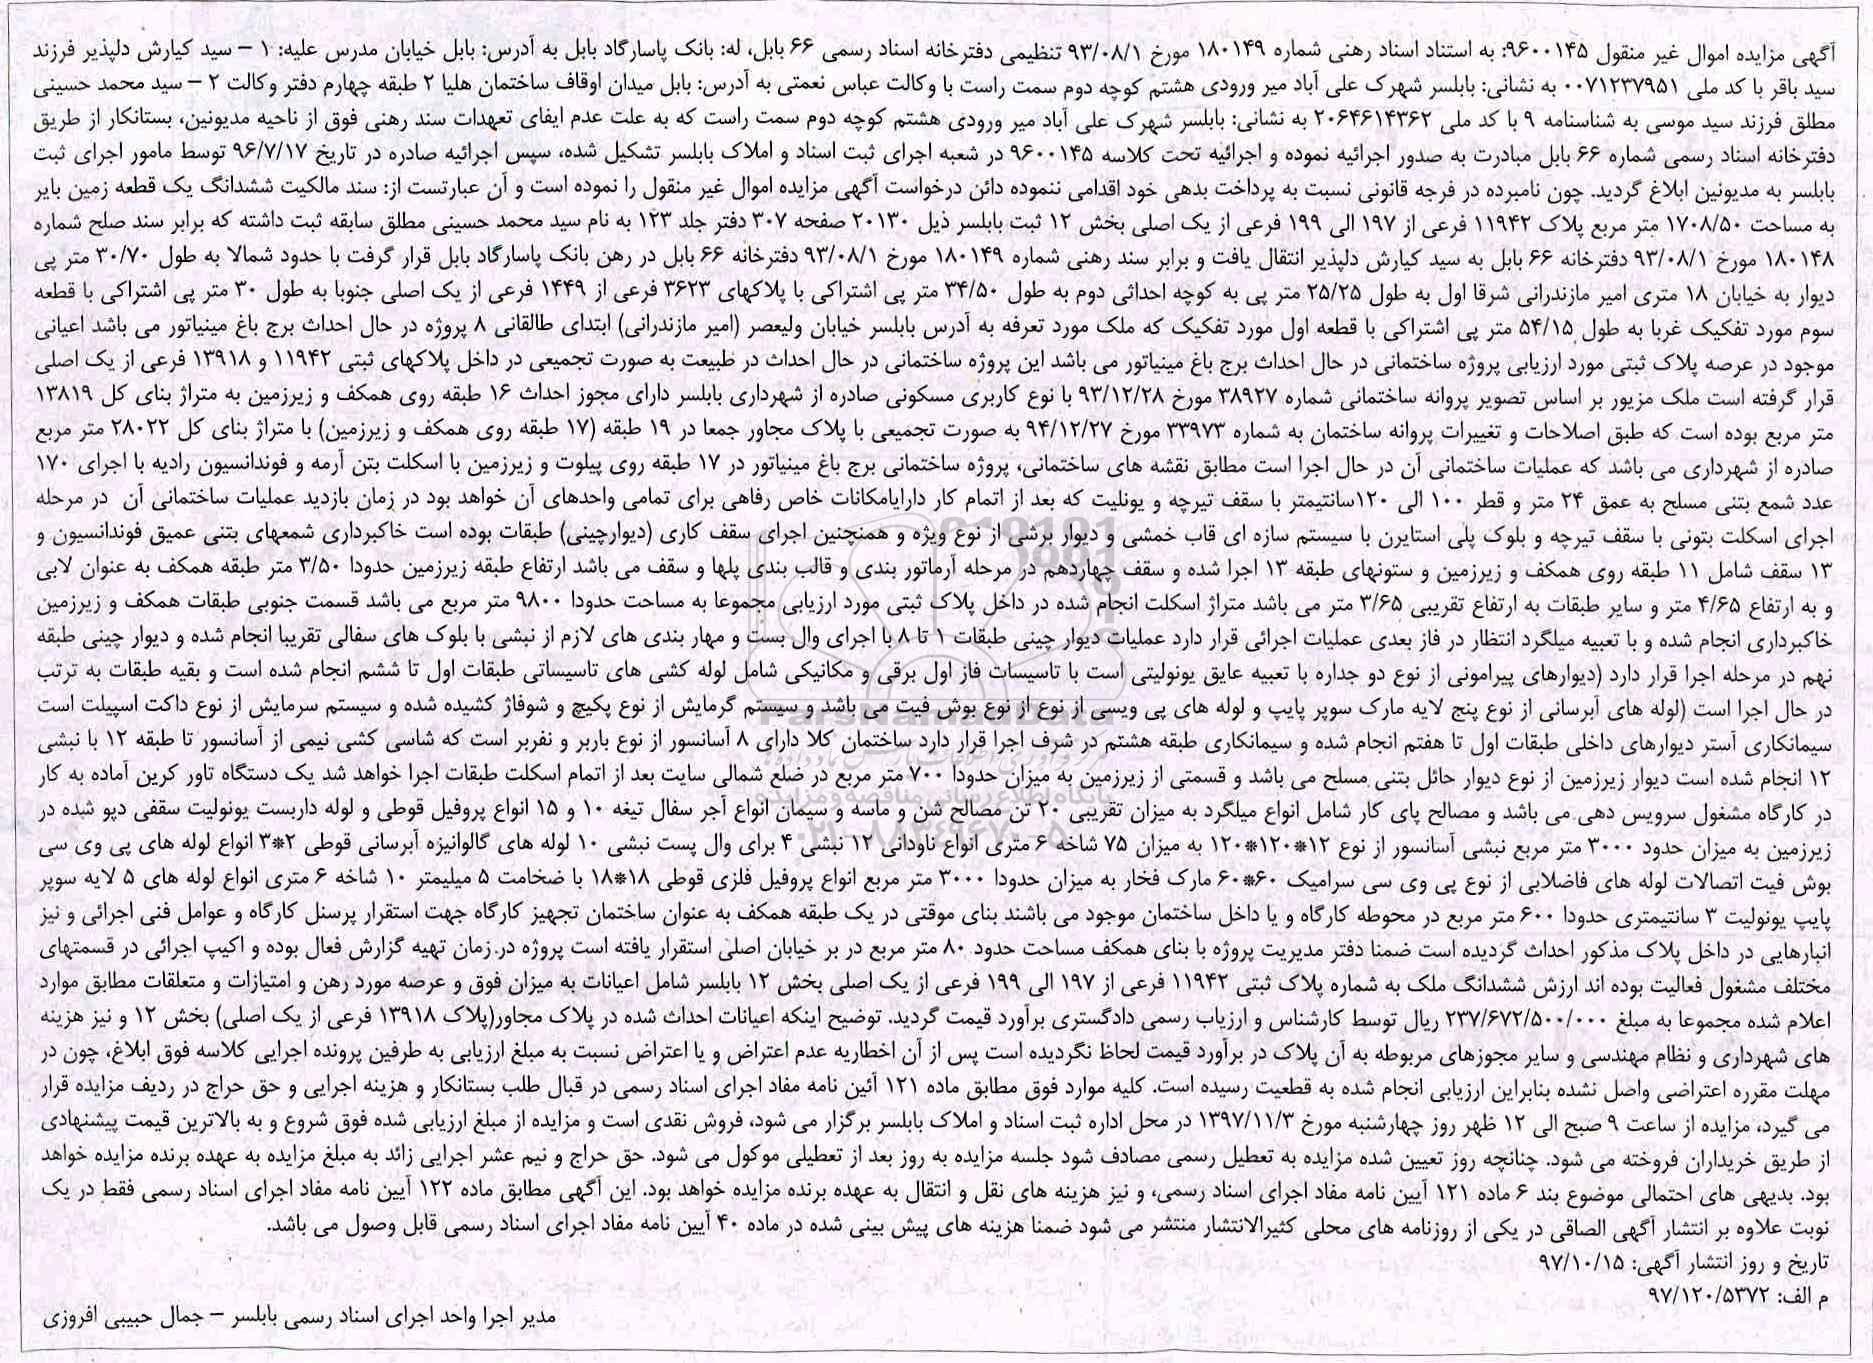 آگهی مزایده اموال غیر منقول ۹۶۰۰۱۴۵: به استناد اسناد رهنی شماره ۱۸۰۱۴۹ مورخ ۹۳/۰۸/۱ تنظیمی دفترخانه اسناد رسمی ۶۶ بابل، له: بانک پاسارگاد بابل به آدرس: بابل خیابان مدرس علیه: ۱ – سید کیارش دلپذیر فرزند
سید باقر با کد ملی ۰۰۷۱۲۳۷۹۵۱ به نشانی: بابلسر شهرک علی آباد میر ورودی هشتم کوچه دوم سمت راست با وکالت عباس نعمتی به آدرس: بابل میدان اوقاف ساختمان هلیا ۲ طبقه چهارم دفتر وکالت ۲ – سید محمد حسینی
مطلق فرزند سید موسی به شناسنامه ۹ با کد ملی ۲۰۶۴۶۱۴۳۶۲ به نشانی: بابلسر شهرک علی آباد میر ورودی هشتم کوچه دوم سمت راست که به علت عدم ایفای تعهدات سند رهنی فوق از ناحیه مدیونین، بستانکار از طریق
دفترخانه اسناد رسمی شماره ۶۶ بابل مبادرت به صدور اجرائیه نموده و اجرائیه تحت کلاسه ۹۶۰۰۱۴۵ در شعبه اجرای ثبت اسناد و املاک بابلسر تشکیل شده، سپس اجرائیه صادره در تاریخ ۹۶/۷/۱۷ توسط مامور اجرای ثبت
بابلسر به مدیونین ابلاغ گردید. چون نامبرده در فرجه قانونی نسبت به پرداخت بدهی خود اقدامی ننموده دائن درخواست آگهی مزایده اموال غیر منقول را نموده است و آن عبارتست از: سند مالکیت ششدانگ یک قطعه زمین بایر
به مساحت ۱۷۰۸/۵۰ متر مربع پلاک ۱۱۹۴۲ فرعی از ۱۹۷ الی ۱۹۹ فرعی از یک اصلی بخش ۱۲ ثبت بابلسر ذیل ۲۰۱۳۰ صفحه ۳۰۷ دفتر جلد ۱۲۳ به نام سید محمد حسینی مطلق سابقه ثبت داشته که برابر سند صلح شماره
۱۸۰۱۴۸ مورخ ۹۳/۰۸/۱ دفترخانه ۶۶ بابل به سید کیارش دلپذیر انتقال یافت و برابر سند رهنی شماره ۱۸۰۱۴۹ مورخ ۹۳/۰۸/۱ دفترخانه ۶۶ بابل در رهن بانک پاسارگاد بابل قرار گرفت با حدود شمالا به طول ۳۰/۷۰ متر پی
دیوار به خیابان ۱۸ متری امیر مازندرانی شرقا اول به طول ۲۵/۲۵ متر پی به کوچه احداثی دوم به طول ۳۴/۵۰ متر پی اشتراکی با پلاکهای ۳۶۲۳ فرعی از ۱۴۴۹ فرعی از یک اصلی جنوبا به طول ۳۰ متر پی اشتراکی با قطعه
سوم مورد تفکیک غربا به طول ۵۴/۱۵ متر پی اشتراکی با قطعه اول مورد تفکیک که ملک مورد تعرفه به آدرس بابلسر خیابان ولیعصر (امیر مازندرانی) ابتدای طالقانی ۸ پروژه در حال احداث برج باغ مینیاتور می باشد اعیانی
موجود در عرصه پلاک ثبتی مورد ارزیابی پروژه ساختمانی در حال احداث برج باغ مینیاتور می باشد این پروژه ساختمانی در حال احداث در طبیعت به صورت تجمیعی در داخل پلاکهای ثبتی ۱۱۹۴۲ و ۱۳۹۱۸ فرعی از یک اصلی
قرار گرفته است ملک مزبور بر اساس تصویر پروانه ساختمانی شماره ۳۸۹۲۷ مورخ ۹۳/۱۲/۲۸ با نوع کاربری مسکونی صادره از شهرداری بابلسر دارای مجوز احداث ۱۶ طبقه روی همکف و زیرزمین به متراژ بنای کل ۱۳۸۱۹
متر مربع بوده است که طبق اصلاحات و تغییرات پروانه ساختمان به شماره ۳۳۹۷۳ مورخ ۹۴/۱۲/۲۷ به صورت تجمیعی با پلاک مجاور جمعا در ۱۹ طبقه (۱۷ طبقه روی همکف و زیرزمین) با متراژ بنای کل ۲۸۰۲۲ متر مربع
صادره از شهرداری می باشد که عملیات ساختمانی آن در حال اجرا است مطابق نقشه های ساختمانی، پروژه ساختمانی برج باغ مینیاتور در ۱۷ طبقه روی پیلوت و زیرزمین با اسکلت بتن آرمه و فوندانسیون رادیه با اجرای ۱۷۰
عدد شمع بتنی مسلح به عمق ۲۴ متر و قطر ۱۰۰ الی ۱۲۰سانتیمتر با سقف تیرچه و یونلیت که بعد از اتمام کار دارایامکانات خاص رفاهی برای تمامی واحدهای آن خواهد بود در زمان بازدید عملیات ساختمانی آن در مرحله
اجرای اسکلت بتونی با سقف تیرچه و بلوک پلی استایرن با سیستم سازه ای قاب خمشی و دیوار برشی از نوع ویژه و همچنین اجرای سقف کاری (دیوارچینی) طبقات بوده است خاکبرداری شمعهای بتنی عمیق فوندانسیون و
۱۳ سقف شامل ۱۱ طبقه روی همکف و زیرزمین و ستونهای طبقه ۱۳ اجرا شده و سقف چهاردهم در مرحله آرماتور بندی و قالب بندی پلها و سقف می باشد ارتفاع طبقه زیرزمین حدودا ۳/۵۰ متر طبقه همکف به عنوان لابی
و به ارتفاع ۴/۶۵ متر و سایر طبقات به ارتفاع تقریبی ۳/۶۵ متر می باشد متراژ اسکلت انجام شده در داخل پلاک ثبتی مورد ارزیابی مجموعا به مساحت حدودا ۹۸۰۰ متر مربع می باشد قسمت جنوبی طبقات همکف و زیرزمین
خاکبرداری انجام شده و با تعبیه میلگرد انتظار در فاز بعدی عملیات اجرائی قرار دارد عملیات دیوار چینی طبقات ۱ تا ۸ با اجرای وال بست و مهار بندی های لازم از نبشی با بلوک های سفالی تقریبا انجام شده و دیوار چینی طبقه
نهم در مرحله اجرا قرار دارد (دیوارهای پیرامونی از نوع دو جداره با تعبیه عایق یونولیتی است با تاسیسات فاز اول برقی و مکانیکی شامل لوله کشی های تاسیساتی طبقات اول تا ششم انجام شده است و بقیه طبقات به ترتب
در حال اجرا است (لوله های آبرسانی از نوع پنج لایه مارک سوپر پایپ و لوله های پی ویسی از نوع از نوع بوش فیت می باشد و سیستم گرمایش از نوع پکیچ و شوفاژ کشیده شده و سیستم سرمایش از نوع داکت اسپیلت است
سیمانکاری آستر دیوارهای داخلی طبقات اول تا هفتم انجام شده و سیمانکاری طبقه هشتم در شرف اجرا قرار دارد ساختمان کلا دارای ۸ آسانسور از نوع باربر و نفربر است که شاسی کشی نیمی از آسانسور تا طبقه ۱۲ با نبشی
۱۲ انجام شده است دیوار زیرزمین از نوع دیوار حائل بتنی مسلح می باشد و قسمتی از زیرزمین به میزان حدودا ۷۰۰ متر مربع در ضلع شمالی سایت بعد از اتمام اسکلت طبقات اجرا خواهد شد یک دستگاه تاور کرین آماده به کار
در کارگاه مشغول سرویس دهی می باشد و مصالح پای کار شامل انواع میلگرد به میزان تقریبی ۲۰ تن مصالح شن و ماسه و سیمان انواع آجر سفال تیغه ۱۰ و ۱۵ انواع پروفیل قوطی و لوله داربست یونولیت سقفی دپو شده در
زیرزمین به میزان حدود ۳۰۰۰ متر مربع نبشی آسانسور از نوع ۱۲*۱۲۰*۱۲۰ به میزان ۷۵ شاخه ۶ متری انواع ناودانی ۱۲ نبشی ۴ برای وال پست نبشی ۱۰ لوله های گالوانیزه آبرسانی قوطی ۲*۳ انواع لوله های پی وی سی
بوش فیت اتصالات لوله های فاضلابی از نوع پی وی سی سرامیک ۶۰*۶۰ مارک فخار به میزان حدودا ۳۰۰۰ متر مربع انواع پروفیل فلزی قوطی ۱۸*۱۸ با ضخامت ۵ میلیمتر ۱۰ شاخه ۶ متری انواع لوله های ۵ لایه سوپر
پایپ یونولیت ۳ سانتیمتری حدودا ۶۰۰ متر مربع در محوطه کارگاه و یا داخل ساختمان موجود می باشند بنای موقتی در یک طبقه همکف به عنوان ساختمان تجهیز کارگاه جهت استقرار پرسنل کارگاه و عوامل فنی اجرائی و نیز
انبارهایی در داخل پلاک مذکور احداث گردیده است ضمنا دفتر مدیریت پروژه با بنای همکف مساحت حدود ۸۰ متر مربع در بر خیابان اصلی استقرار یافته است پروژه در زمان تهیه گزارش فعال بوده و اکیپ اجرائی در قسمتهای
مختلف مشغول فعالیت بوده اند ارزش ششدانگ ملک به شماره پلاک ثبتی ۱۱۹۴۲ فرعی از ۱۹۷ الی ۱۹۹ فرعی از یک اصلی بخش ۱۲ بابلسر شامل اعیانات به میزان فوق و عرصه مورد رهن و امتیازات و متعلقات مطابق موارد
اعلام شده مجموعا به مبلغ ۲۳۷/۶۷۲/۵۰۰/۰۰۰ ریال توسط کارشناس و ارزیاب رسمی دادگستری برآورد قیمت گردید. توضیح اینکه اعیانات احداث شده در پلاک مجاور(پلاک ۱۳۹۱۸ فرعی از یک اصلی) بخش ۱۲ و نیز هزینه
های شهرداری و نظام مهندسی و سایر مجوزهای مربوطه به آن پلاک در برآورد قیمت لحاظ نگردیده است پس از آن اخطاریه عدم اعتراض و یا اعتراض نسبت به مبلغ ارزیابی به طرفین پرونده اجرایی کلاسه فوق ابلاغ، چون در
مهلت مقرره اعتراضی واصل نشده بنابراین ارزیابی انجام شده به قطعیت رسیده است. کلیه موارد فوق مطابق ماده ۱۲۱ آئین نامه مفاد اجرای اسناد رسمی در قبال طلب بستانکار و هزینه اجرایی و حق حراج در ردیف مزایده قرار
می گیرد، مزایده از ساعت ۹ صبح الی ۱۲ ظهر روز چهارشنبه مورخ ۱۳۹۷/۱۱/۳ در محل اداره ثبت اسناد و املاک بابلسر برگزار می شود، فروش نقدی است و مزایده از مبلغ ارزیابی شده فوق شروع و به بالاترین قیمت پیشنهادی
از طریق خریداران فروخته می شود. چنانچه روز تعیین شده مزایده به تعطیل رسمی مصادف شود جلسه مزایده به روز بعد از تعطیلی موکول می شود. حق حراج و نیم عشر اجرایی زائد به مبلغ مزایده به عهده برنده مزایده خواهد
بود. بدیهی های احتمالی موضوع بند ۶ ماده ۱۲۱ آیین نامه مفاد اجرای اسناد رسمی، و نیز هزینه های نقل و انتقال به عهده برنده مزایده خواهد بود. این آگهی مطابق ماده ۱۲۲ آیین نامه مفاد اجرای اسناد رسمی فقط در یک
نوبت علاوه بر انتشار آگهی الصاقی در یکی از روزنامه های محلی کثیرالانتشار منتشر می شود ضمنا هزینه های پیش بینی شده در ماده ۴۰ آیین نامه مفاد اجرای اسناد رسمی قابل وصول می باشد.
تاریخ و روز انتشار آگهی: ۹۷/۱۰/۱۵
م الف: ۹۷/۱۲۰/۵۳۷۲
مدیر اجرا واحد اجرای اسناد رسمی بابلسر – جمال حبیبی افروزی